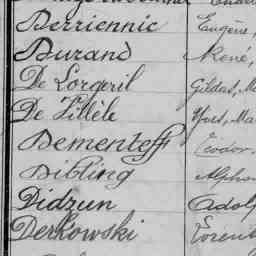 Derriennic Eugène,
Durand René,
De Lorgeril Gildas, Ma
De Fillèle Yves, Ma
Dementeff Teodor,
Dibling Alphon
Didzun Adolp
Derkowski Lorent